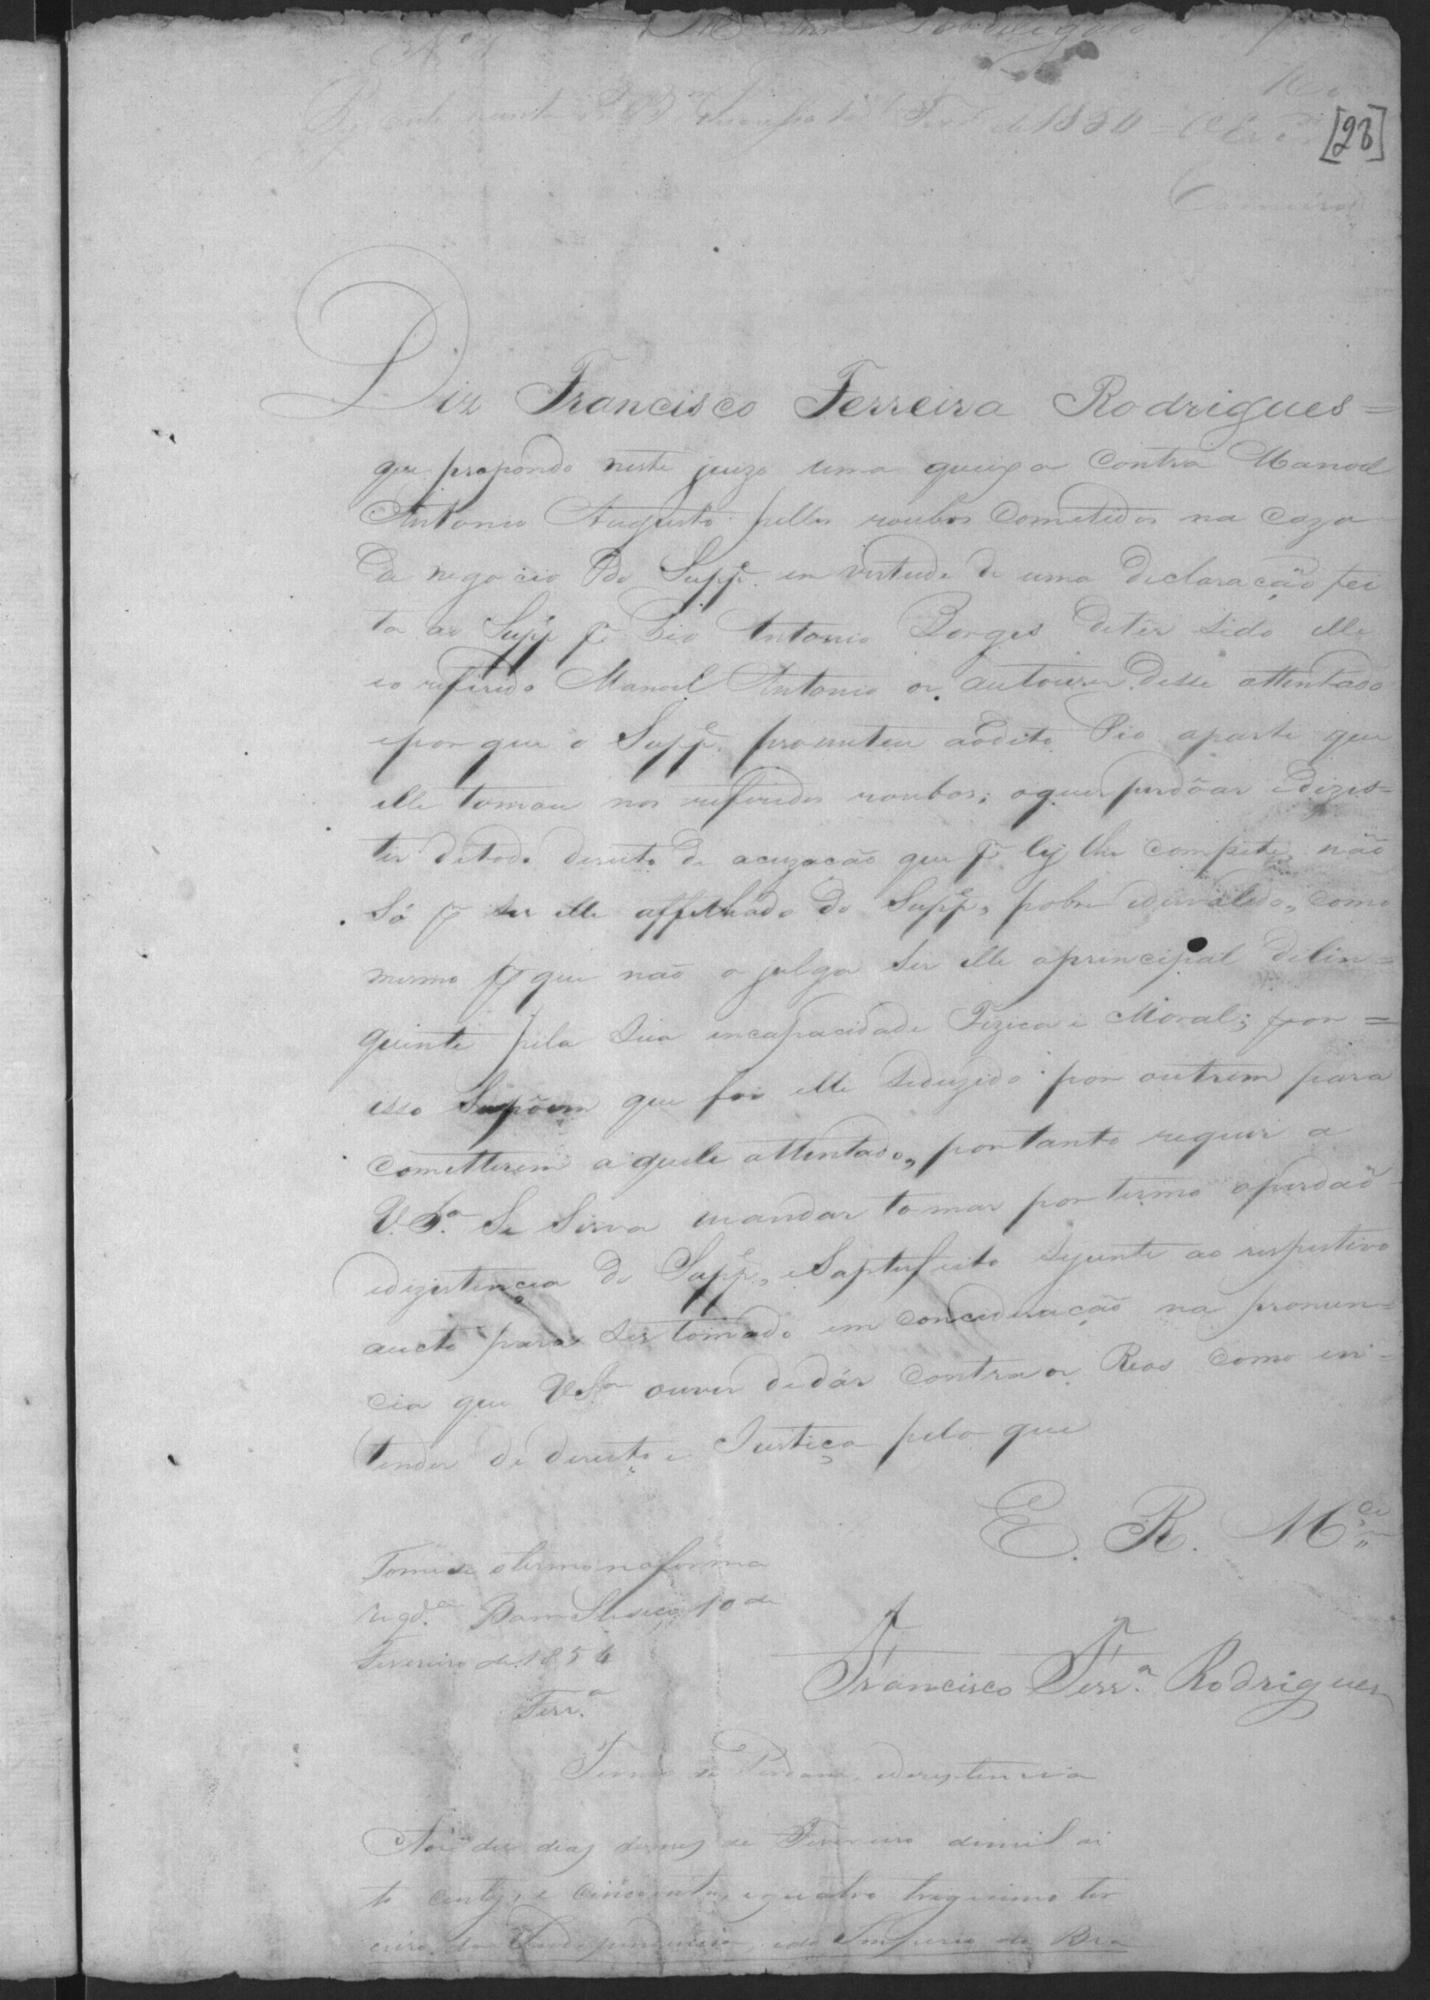 de 1850
[23]
Diz Francisco Ferreira Rodrigues =
que propondo neste juizo uma queixa contra Manoel
Antonio Augusto pellos roubos cometidos na caza
de negocio do Supp.e em virtude de uma declaração fei
ta ao Supp.e p.r Pio Antonio Borges deter sido elle
eo referido Manoel Antonio os autoures desse attentado
epor que o Supp.e prometeu aodito Pio aparte que
elle tomou nos referidos roubos; oquer perdôar edezis=
tir detodo direito de acuzacão que p.r ley lhe compete não
Só p.r ser elle affelhado do Supp.e, pobre edesvalido, como
mesmo p.r que não o julga ser elle oprincipal delin=
quente pela sua encapacidade Fizica e Moral; por=
isso Supõem que foi elle seduzido por outrem para
cometterem aquele attentado, portanto requer a
V.S.a Se Sirva mandar tomar por termo operdaõ
edezistençia do Supp.e, eSaptesfeito Sejunte ao respectivo
aucto para ser tomado em concideração na pronun=
cia que VS.a ouver dedár contra os Reos como en=
tender de direito e Justiça pelo que
E. R. M.ce
Tomese otermo naforma
reqd.a 10 de
Fevereiro de 1854
Ferr.a
Francisco Ferr.a Rodrigues
Termo de Perdam, edezistencia
Aos dez dias domez de Fevereiro demil oi
to centos, e cincoenta, equatro trigesimo ter
ceiro da Independencia, edo Imperio do Bra